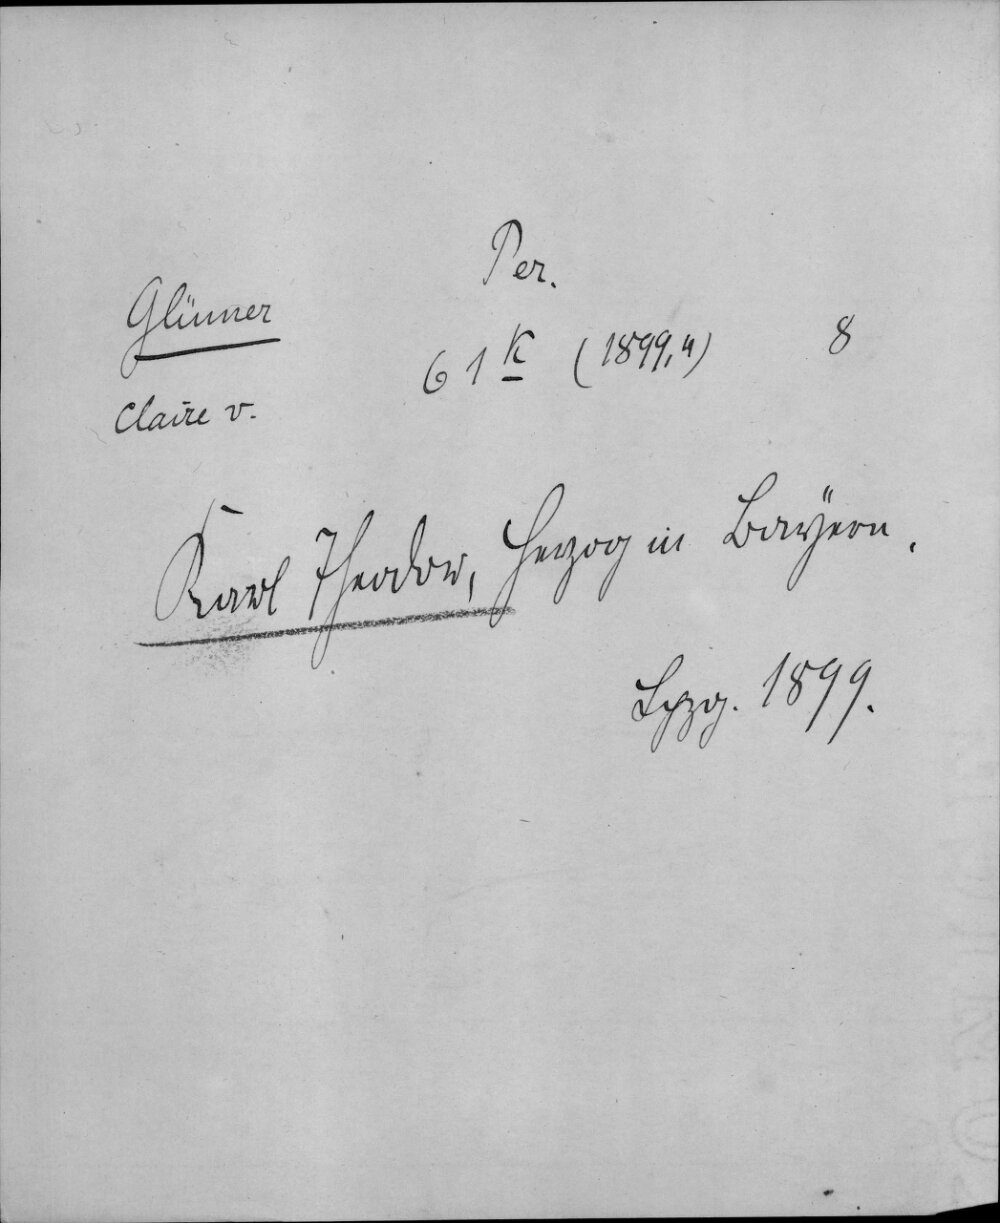 Per.
Glümer
61 K (1899,4) 8
Claire v.
Karl Theodor, Herzog in Bayern.
Lpzg. 1899.